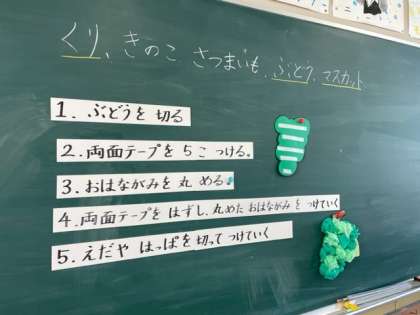 くり、きのこ さつまいも、ぶどう、マスカット
1. ぶどうを 切る
2. 両面テープを 5こ つける。
3. おはながみを 丸 める。
4. 両面テープを はずし、丸めた おはながみ を つけていく
5. えだや はっぱを 切って つけていく